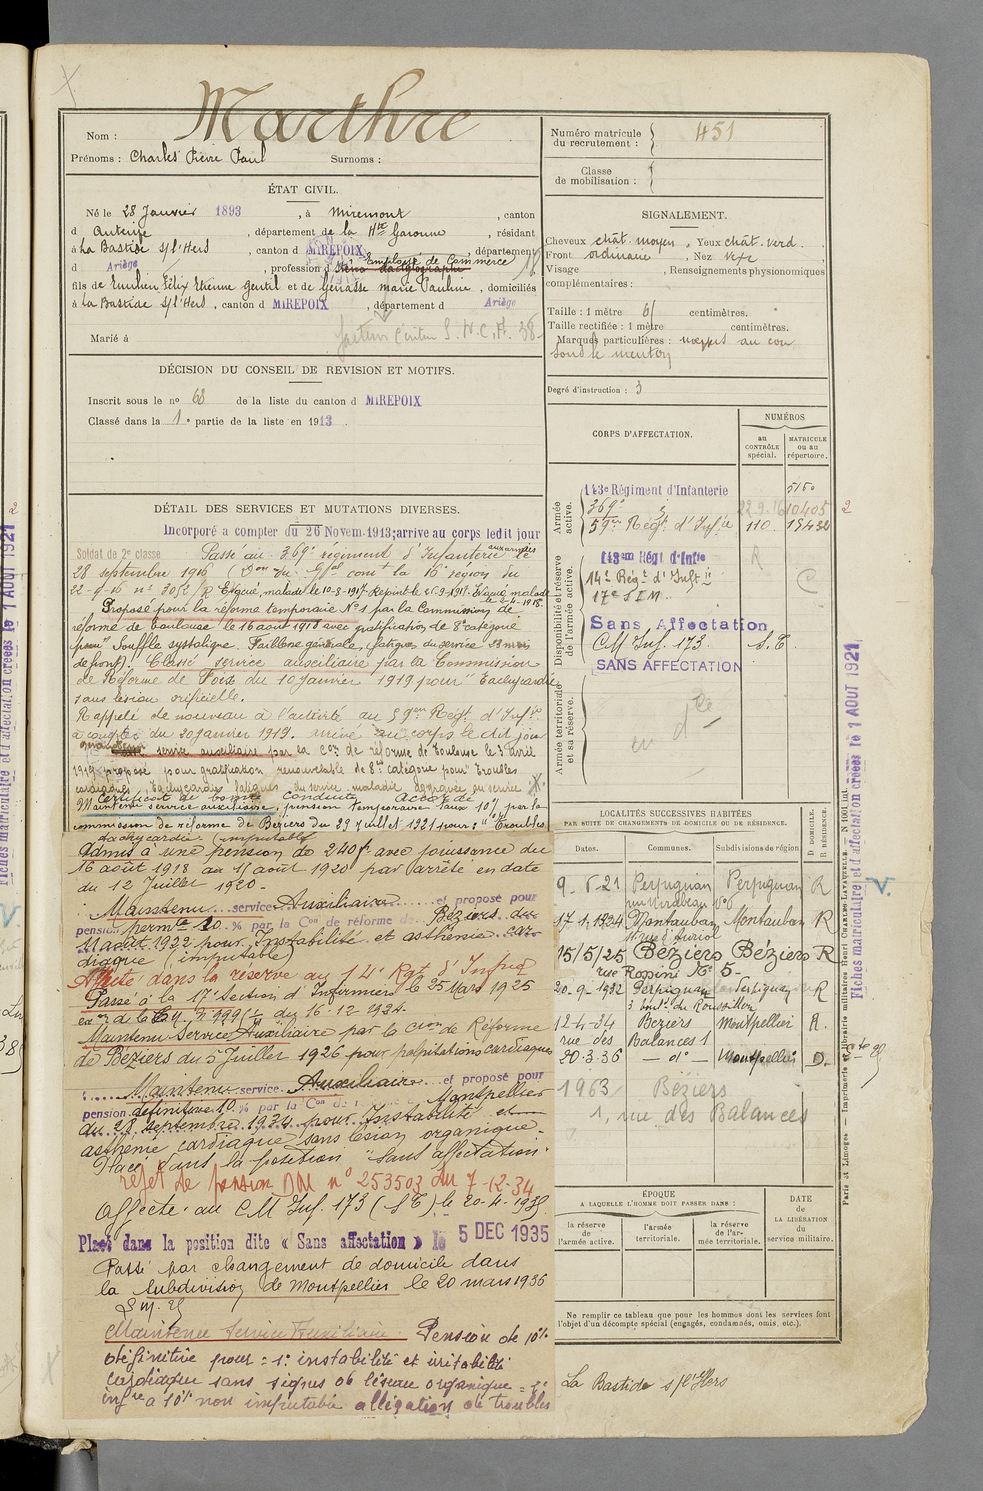 Marthre
Nom :
Prénoms : Charles Pierre Paul Surnoms :
ÉTAT CIVIL.
Né le 28 Janvier 1893, à Miremont, canton
d Auterive, département de la Hte Garonne, résidant
à La Bastide s/l'Hers, canton d MIREPOIX, département
Employé de Commerce
d Ariège, profession d dactylographe
fils de Emilien Félix Etienne Gentil et de Genasse Marie Pauline, domiciliés
à La Bastide s/l'Hers, canton d MIREPOIX, département d Ariège
facteur S.N.C.F. 38
Marié à
DÉCISION DU CONSEIL DE REVISION ET MOTIFS.
Inscrit sous le no 68 de la liste du canton d MIREPOIX
Classé dans la 1e partie de la liste en 1913.
DÉTAIL DES SERVICES ET MUTATIONS DIVERSES.
Incorporé a compter du 26 Novem. 1913; arrive au corps ledit jour
Soldat de 2e classe Passé au 369e régiment d'Infanterie aux armées le
28 septembre 1916 (Don du Gal comt la 16e région du
22-9-16 no 3052/R Evacué, malade le 10-8-1917. Rejoint le 9-1917. Evacué malade
le 2-4-1918.
Proposé pour la réforme temporaire No 1 par la Commission de
réforme de Toulouse le 16 août 1918 avec gratification de 8e catégorie
pour "Souffle systolique. Faiblesse générale, fatigues du service 53 mois
de front). Classé service auxiliaire par la Commission
de Réforme de Foix du 10 Janvier 1919 pour "Tachycardie
sans lésion orificielle.
Rappelé de nouveau à l'activité au 59eme Régt d'Infie
à compter du 20 janvier 1919. arrivé au corps le dit jour
service auxiliaire par la Con de réforme de Toulouse le 3 avril
1919 proposé pour gratification renouvelable de 8e catégorie pour "Troubles
cardiaques, tachycardie fatigues du service maladie aggravée au service
Certificat de bonne conduite Accordé
Maintenu service auxiliaire, pension temporaire Taux 10% par la
commission de réforme de Béziers du 29 Juillet 1921 pour : "Troubles
tachycardie (imputable)
Admis à une pension de 240f avec jouissance du
16 août 1918 au 15 août 1920 par arrêté en date
du 12 Juillet 1920.
Maintenu service Auxiliaire et proposé pour
pension permte 10 % par la Con de réforme de Béziers du
11 août 1922 pour Instabilité et asthénie car-
diaque (imputable)
Affecté dans la réserve au 14e Rgt d'Infie
Passé à la 17e Section d'Infirmiers le 25 Mars 1925
du 16-12-1924.
Maintenu Service Auxiliaire par la Cion de Réforme
de Béziers du 5 Juillet 1926 pour palpitations cardiaques
Maintenu service Auxiliaire et proposé pour
pension définitive 10 % par la Con de Montpellier
du 28 septembre 1934 pour Instabilité et
asthénie cardiaque sans lésion organique.
Placé dans la position "Sans affectation".
rejet de pension DM no 253503 du 7-12-34
Affecté au CM Inf. 173 (S T) le 20-4-1935
Placé dans la position dite « Sans affectation » le 5 DEC 1935
Passé par changement de domicile dans
la subdivision de Montpellier le 20 mars 1936
Maintenu Service Auxiliaire Pension de 10%
définitive pour : 1o instabilité et irritabilité
cardiaque sans signes de lésion organique = 2o
infre à 10% non imputable allégation de troubles
Numéro matricule du recrutement : 451
Classe de mobilisation :
SIGNALEMENT.
Cheveux chât. moyen, Yeux chât. verd.
Front ordinaire, Nez
Visage, Renseignements physionomiques
complémentaires :
Taille : 1 mètre 61 centimètres.
Taille rectifiée : 1 mètre centimètres.
Marques particulières : au cou
sous le menton
Degré d'instruction : 3
CORPS D'AFFECTATION.
NUMÉROS
au CONTRÔLE spécial.
MATRICULE ou au répertoire.
Armée active.
143e Régiment d'Infanterie 5150
369e 22.9.16 10405 2
59me Régt d'Infie 110. 15432
Disponibilité et réserve de l'armée active.
143eme Régt d'Infie R
14e Régt d'Infie C
17e S I M
Sans Affectation
CM Inf. 173 S.T.
SANS AFFECTATION
Armée territoriale et sa réserve.
LOCALITÉS SUCCESSIVES HABITÉES
PAR SUITE DE CHANGEMENTS DE DOMICILE OU DE RÉSIDENCE.
Dates. Communes. Subdivisions de région D DOMICILE. R RÉSIDENCE.
9-5-21 Perpignan Perpignan R
rue Mirabeau No 6
17-1-1924 Montauban Montauban R
15/5/25 Béziers Béziers R
rue Rossini No 5-
20-9-1932 Perpignan Perpignan R
3 boult du Roussillon
12-4-34 Béziers Montpellier R.
rue des Balances 1
20-3-36 - do - Montpellier D.
1963 Béziers
1, rue des Balances
ÉPOQUE
A LAQUELLE L'HOMME DOIT PASSER DANS :
la réserve de l'armée active.
l'armée territoriale.
la réserve de l'armée territoriale.
DATE
de
LA LIBÉRATION
du
service militaire.
Ne remplir ce tableau que pour les hommes dont les services font
l'objet d'un décompte spécial (engagés, condamnés, omis, etc.).
La Bastide s/l'Hers
Fiches matriculaire et d'affectation créées le 1 AOUT 1921
Paris et Limoges. — Imprimerie et librairie militaires Henri CHARLES-LAVAUZELLE. — N 1001 int.
Fiches matriculaire et d'affectation créées le 1 AOUT 1921